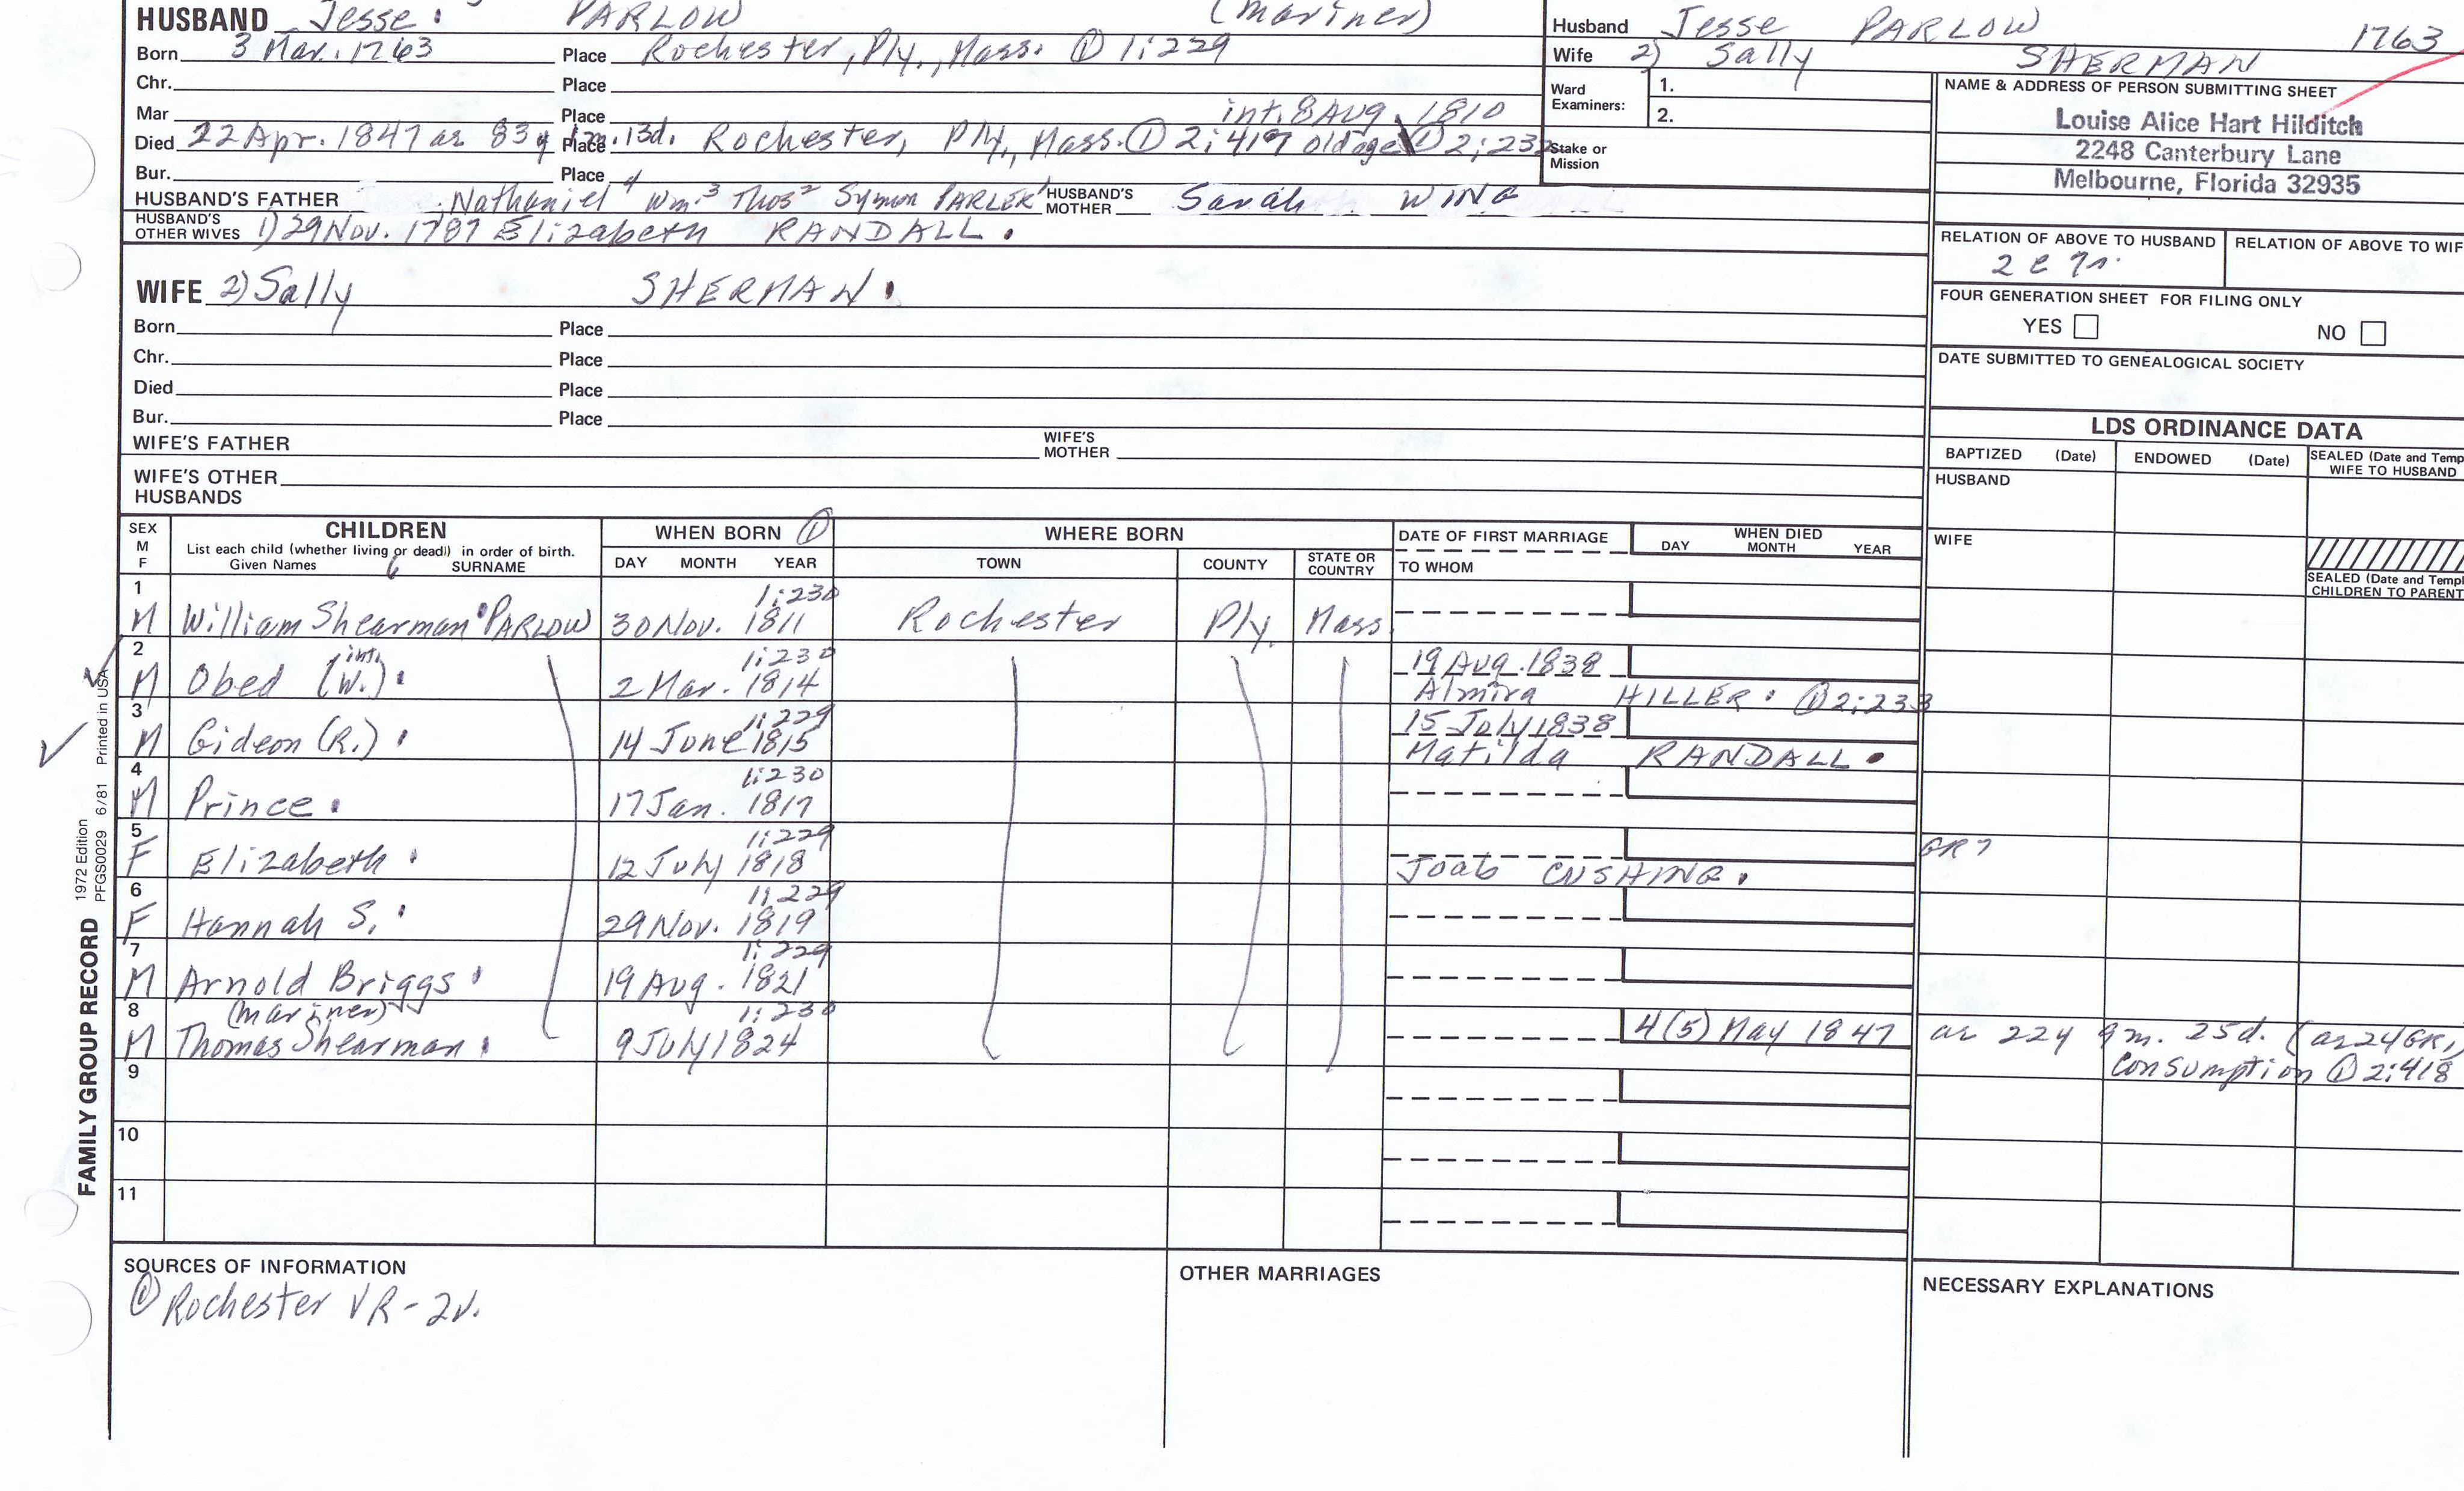 HUSBAND Jesse. PARLOW (Mariner)
Born 3 Mar. 1763 Place Rochester, Ply., Mass. ① 1:229
Chr. Place
Mar Place int. 8 Aug. 1810
Died 22 Apr. 1847 ae 83y 1m. 13d. Place Rochester, Ply., Mass. ① 2:417 old age ① 2:232
Bur. Place
HUSBAND'S FATHER Nathaniel⁴ Wm.³ Thos² Symon PARLER¹ HUSBAND'S MOTHER Sarah WING
HUSBAND'S OTHER WIVES 1) 29 Nov. 1787 Elizabeth RANDALL.
Husband Jesse PARLOW 1763
Wife 2) Sally SHERMAN
Ward Examiners: 1.
2.
Stake or Mission
NAME & ADDRESS OF PERSON SUBMITTING SHEET
Louise Alice Hart Hilditch
2248 Canterbury Lane
Melbourne, Florida 32935
RELATION OF ABOVE TO HUSBAND RELATION OF ABOVE TO WIF
FOUR GENERATION SHEET FOR FILING ONLY
YES NO
DATE SUBMITTED TO GENEALOGICAL SOCIETY
WIFE 2) Sally SHERMAN.
Born Place
Chr. Place
Died Place
Bur. Place
WIFE'S FATHER WIFE'S MOTHER
WIFE'S OTHER HUSBANDS
LDS ORDINANCE DATA
BAPTIZED (Date) ENDOWED (Date) SEALED (Date and Temp
WIFE TO HUSBAND
HUSBAND
WIFE
SEALED (Date and Templ
CHILDREN TO PARENT
SEX M F CHILDREN WHEN BORN ① WHERE BORN DATE OF FIRST MARRIAGE WHEN DIED
List each child (whether living or dead) in order of birth.
Given Names SURNAME DAY MONTH YEAR TOWN COUNTY STATE OR COUNTRY TO WHOM DAY MONTH YEAR
1 1:230
M William Shearman PARLOW 30 Nov. 1811 Rochester Ply. Mass.
2 int. 1:230 19 Aug. 1838
M Obed (W.). 2 Mar. 1814 Almira HILLER. ① 2:233
3 1:229 15 July 1838
M Gideon (R.). 14 June 1815 Matilda RANDALL.
4 1:230
M Prince. 17 Jan. 1817
5 1:229 GR7
F Elizabeth. 12 July 1818 Joab CUSHING.
6 1:229
F Hannah S. 29 Nov. 1819
7 1:229
M Arnold Briggs. 19 Aug. 1821
8 (mariner) 1:230
M Thomas Shearman. 9 July 1824 4(5) May 1847 ae 22y 9m. 25d. (ae 24 GR1
Consumption ① 2:418
9
10
11
SOURCES OF INFORMATION
① Rochester VR - 2v.
OTHER MARRIAGES
NECESSARY EXPLANATIONS
FAMILY GROUP RECORD
1972 Edition
PFGS0029 6/81 Printed in USA